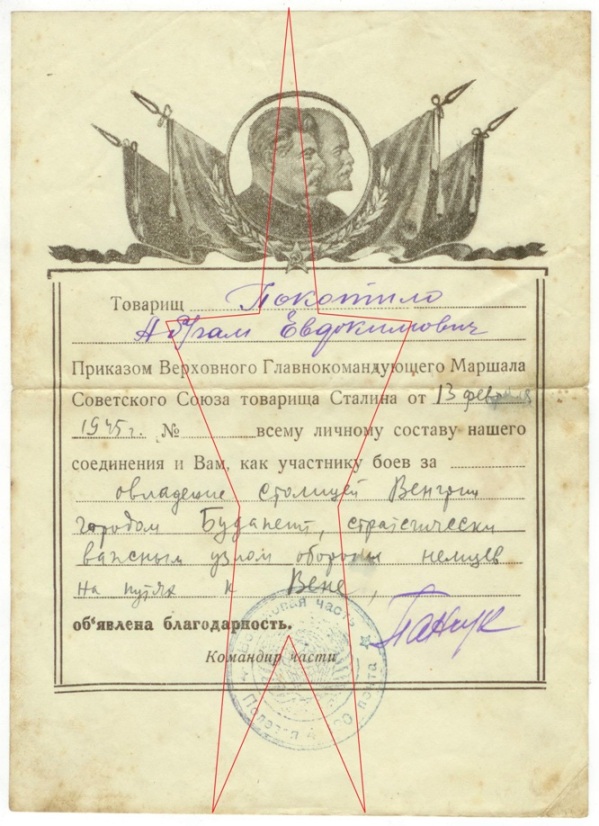 Товарищ Покотило
Абрам Евдокимович
Приказом Верховного Главнокомандующего Маршала
Советского Союза товарища Сталина от 13 февраля
1945 г. № всему личному составу нашего
соединения и Вам, как участнику боев за
овладение столицей Венгрии
городом Будапешт, стратегически
важным узлом обороны немцев
на путях к Вене,
об‘явлена благодарность.
Командир части
Войсковая часть
Полевая почта